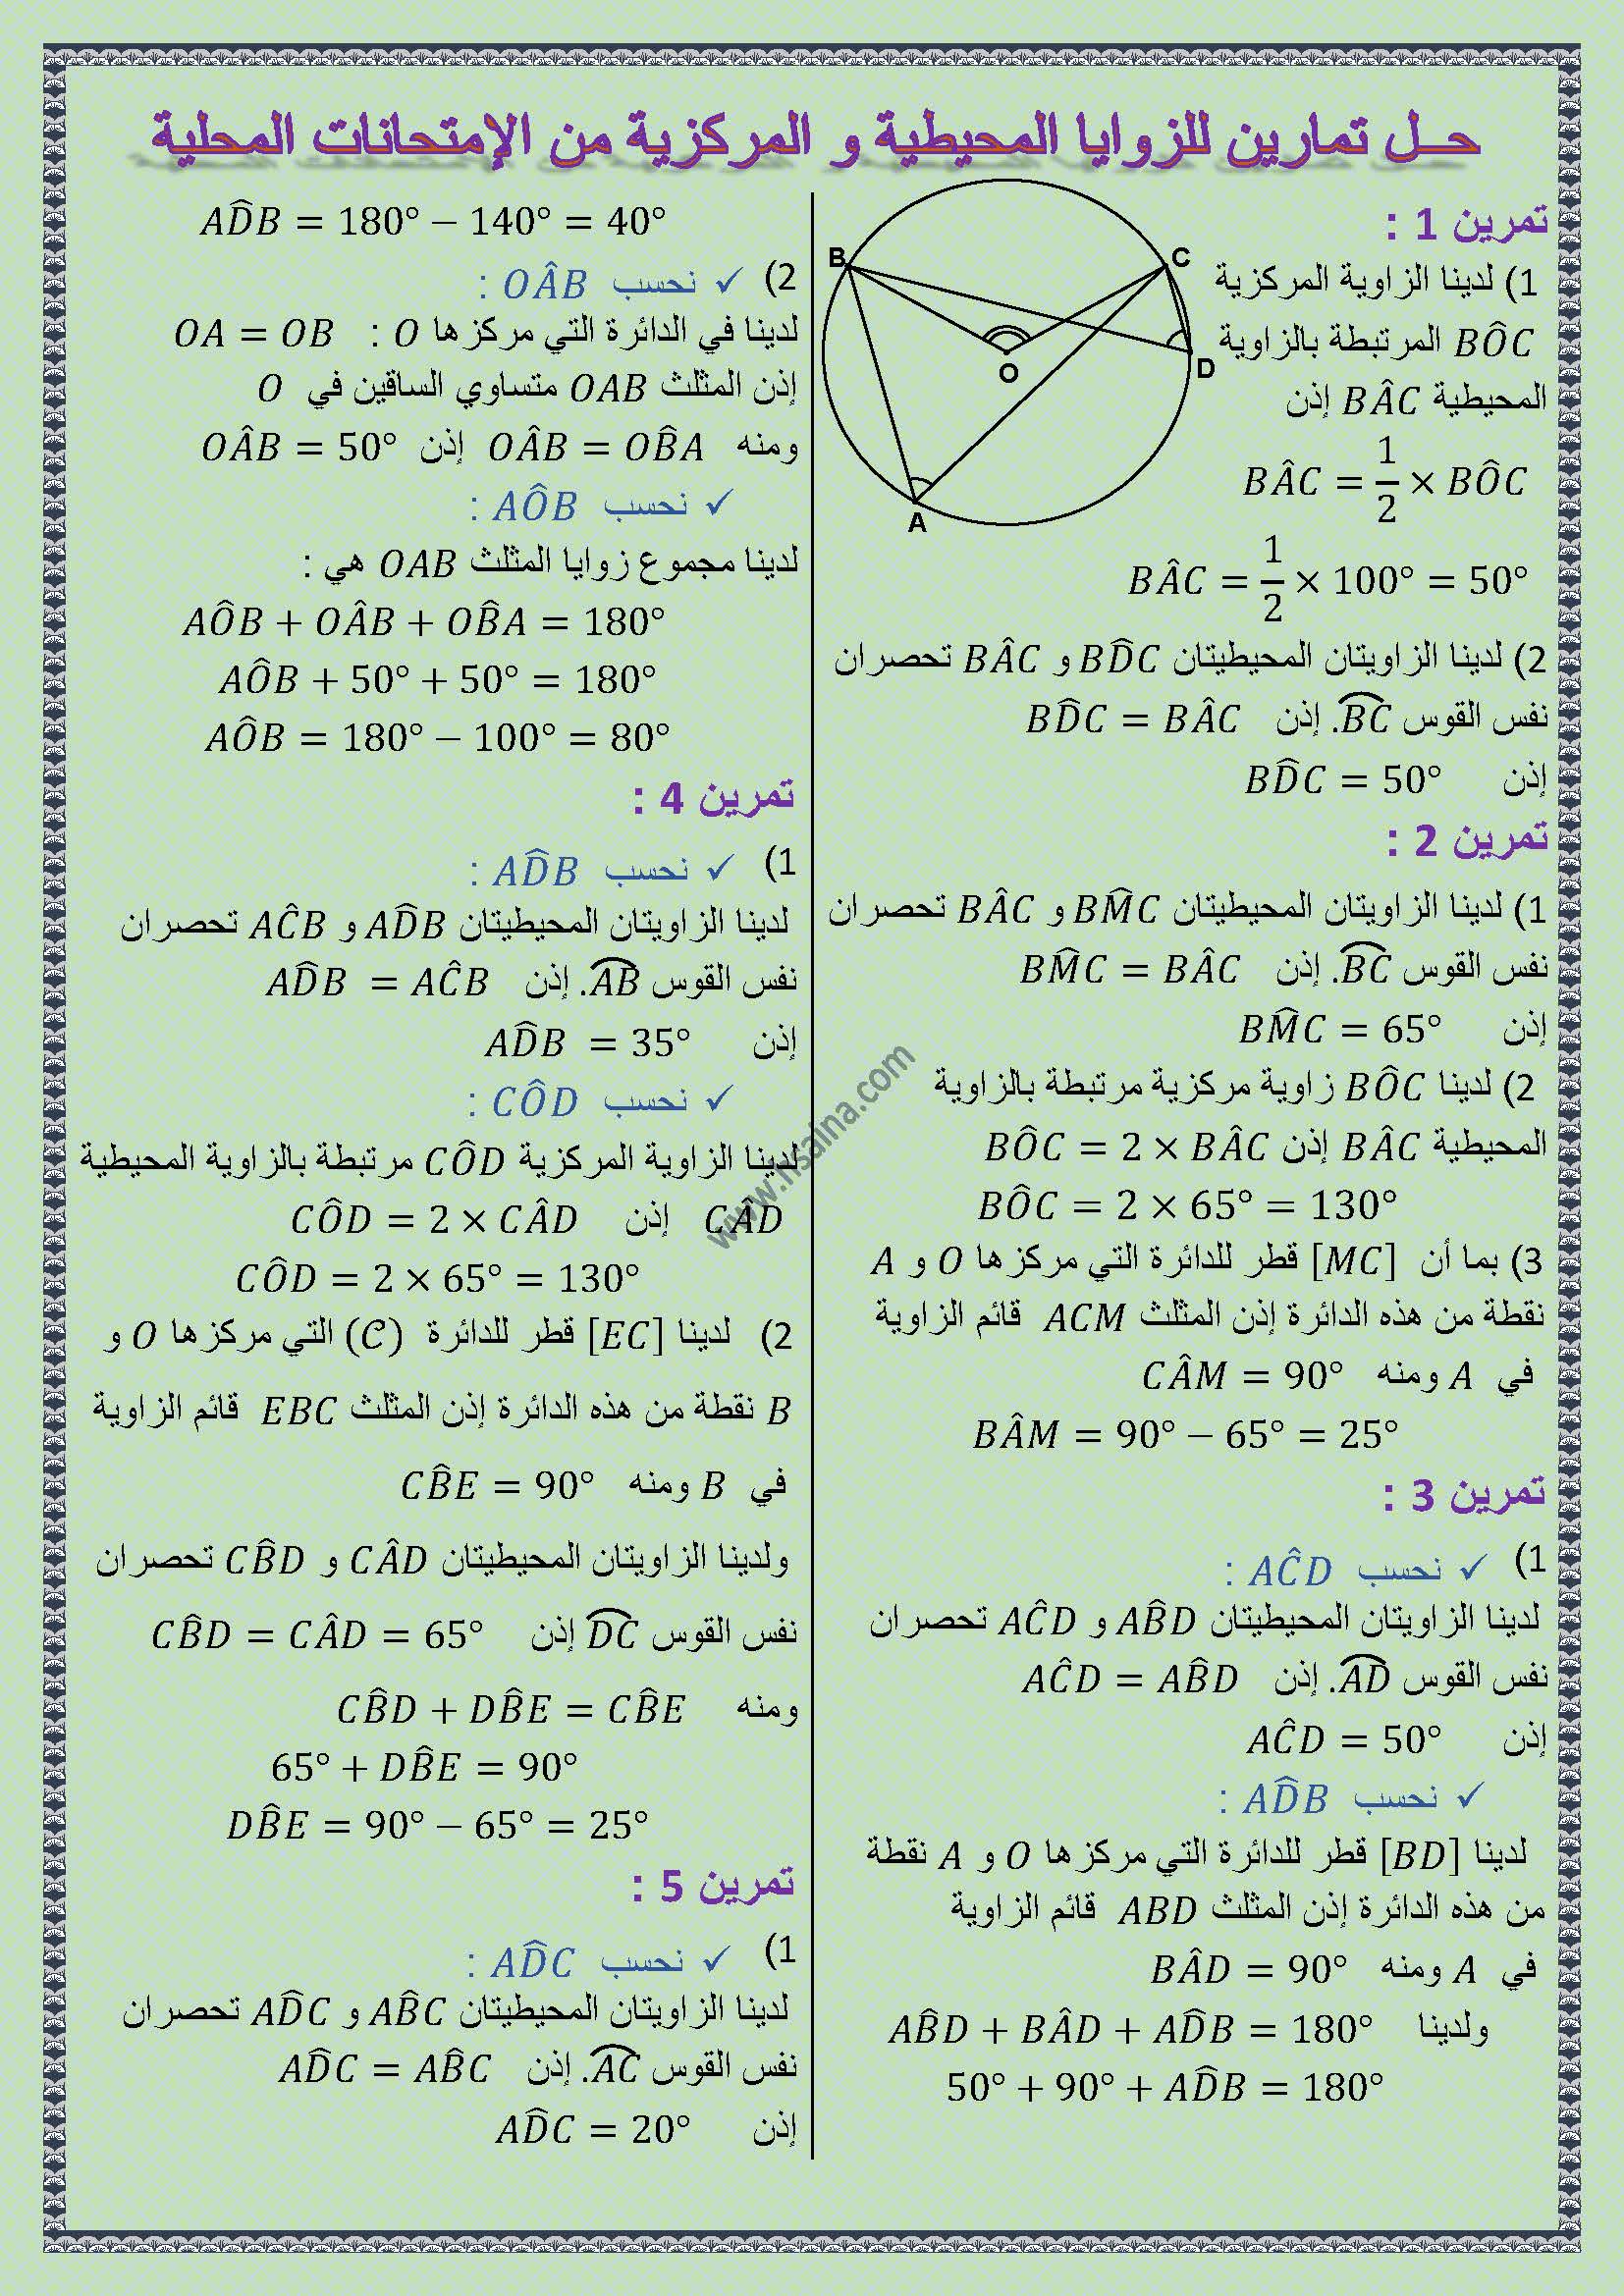 حــل تمارين للزوايا المحيطية و المركزية من الإمتحانات المحلية
تمرين 1 :
1) لدينا الزاوية المركزية
BÔC المرتبطة بالزاوية
المحيطية BÂC إذن
BÂC = 1/2 × BÔC
BÂC = 1/2 × 100° = 50°
B
C
O
D
A
2) لدينا الزاويتان المحيطيتان BD̂C و BÂC تحصران
نفس القوس B͡C. إذن BD̂C = BÂC
إذن BD̂C = 50°
تمرين 2 :
1) لدينا الزاويتان المحيطيتان BM̂C و BÂC تحصران
نفس القوس B͡C. إذن BM̂C = BÂC
إذن BM̂C = 65°
2) لدينا BÔC زاوية مركزية مرتبطة بالزاوية
المحيطية BÂC إذن BÔC = 2 × BÂC
BÔC = 2 × 65° = 130°
3) بما أن [MC] قطر للدائرة التي مركزها O و A
نقطة من هذه الدائرة إذن المثلث ACM قائم الزاوية
في A ومنه CÂM = 90°
BÂM = 90° − 65° = 25°
تمرين 3 :
1) ✓ نحسب AĈD :
لدينا الزاويتان المحيطيتان AB̂D و AĈD تحصران
نفس القوس A͡D. إذن AĈD = AB̂D
إذن AĈD = 50°
✓ نحسب AD̂B :
لدينا [BD] قطر للدائرة التي مركزها O و A نقطة
من هذه الدائرة إذن المثلث ABD قائم الزاوية
في A ومنه BÂD = 90°
ولدينا AB̂D + BÂD + AD̂B = 180°
50° + 90° + AD̂B = 180°
AD̂B = 180° − 140° = 40°
2) ✓ نحسب OÂB :
لدينا في الدائرة التي مركزها O : OA = OB
إذن المثلث OAB متساوي الساقين في O
ومنه OÂB = OB̂A إذن OÂB = 50°
✓ نحسب AÔB :
لدينا مجموع زوايا المثلث OAB هي :
AÔB + OÂB + OB̂A = 180°
AÔB + 50° + 50° = 180°
AÔB = 180° − 100° = 80°
تمرين 4 :
1) ✓ نحسب AD̂B :
لدينا الزاويتان المحيطيتان AD̂B و AĈB تحصران
نفس القوس A͡B. إذن AD̂B = AĈB
إذن AD̂B = 35°
✓ نحسب CÔD :
لدينا الزاوية المركزية CÔD مرتبطة بالزاوية المحيطية
CÂD إذن CÔD = 2 × CÂD
CÔD = 2 × 65° = 130°
2) لدينا [EC] قطر للدائرة (C) التي مركزها O و
B نقطة من هذه الدائرة إذن المثلث EBC قائم الزاوية
في B ومنه CB̂E = 90°
ولدينا الزاويتان المحيطيتان CÂD و CB̂D تحصران
نفس القوس D͡C إذن CB̂D = CÂD = 65°
ومنه CB̂D + DB̂E = CB̂E
65° + DB̂E = 90°
DB̂E = 90° − 65° = 25°
تمرين 5 :
1) ✓ نحسب AD̂C :
لدينا الزاويتان المحيطيتان AB̂C و AD̂C تحصران
نفس القوس A͡C. إذن AD̂C = AB̂C
إذن AD̂C = 20°